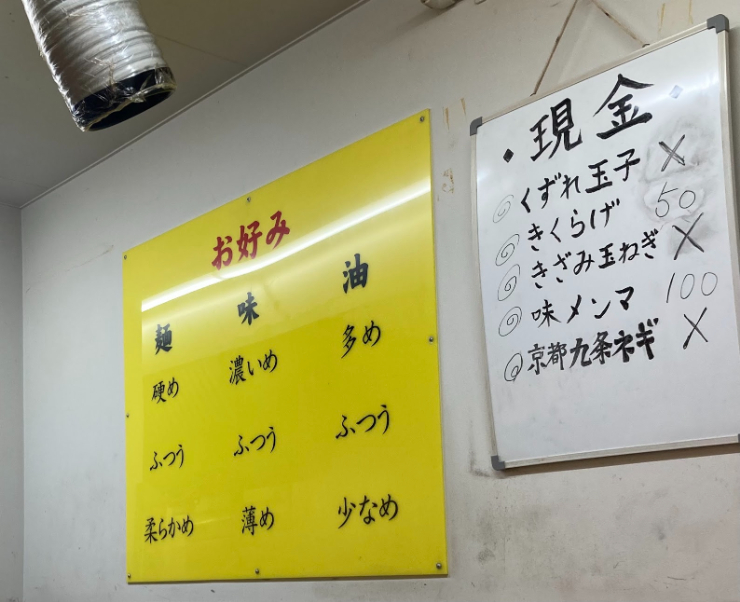 お好み
麺 味 油
硬め 濃いめ 多め
ふつう ふつう ふつう
柔らかめ 薄め 少なめ
現金
くずれ玉子 ×
きくらげ 50
きざみ玉ねぎ ×
味メンマ 100
京都九条ネギ ×